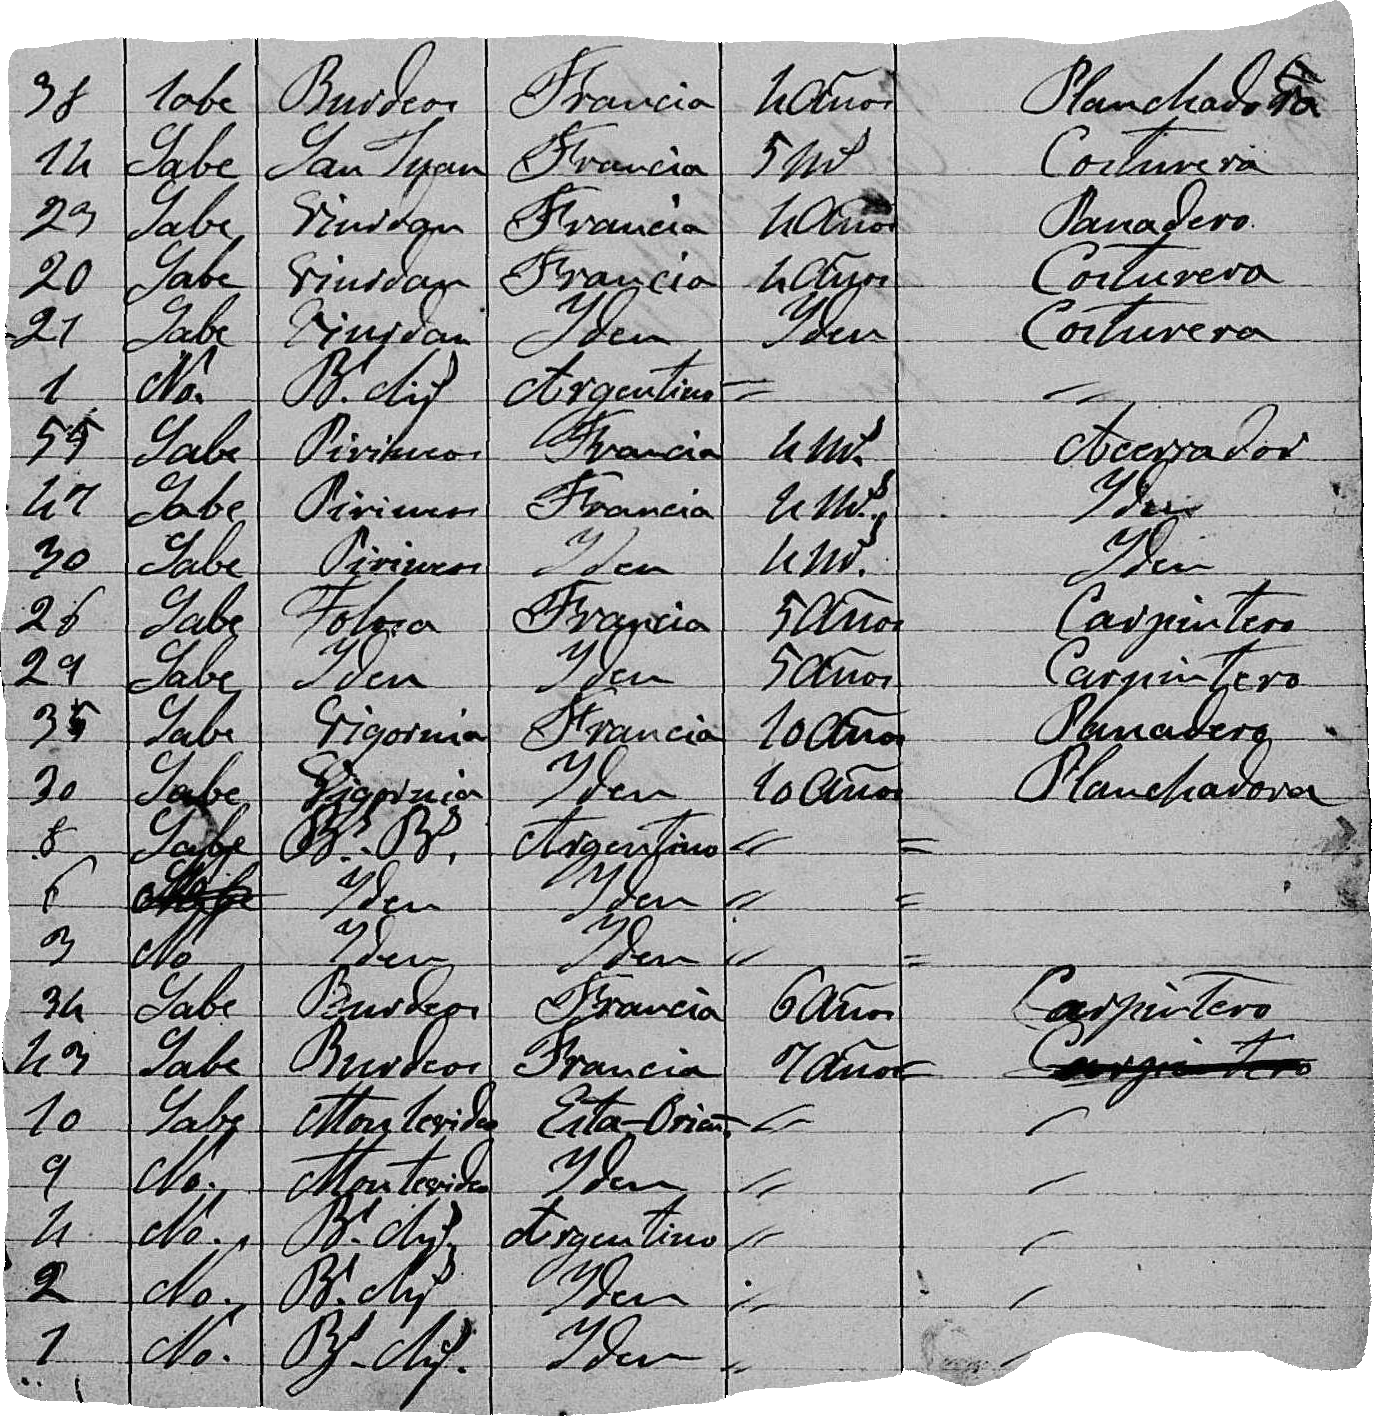 38 Sabe Burdeos Francia 4 Años Planchadora
14 Sabe San Juan Francia 5 Ms Costurera
23 Sabe Francia 4 Años Panadero
20 Sabe Francia 4 Años Costurera
21 Sabe Yden Yden Costurera
1 No. Bs. Ays Argentino = "
55 Sabe Pirineos Francia 4 Ms. Acerrador
47 Sabe Pirineos Francia 4 Ms. Yden
30 Sabe Pirineos Yden 4 Ms. Yden
26 Sabe Tolosa Francia 5 Años Carpintero
29 Sabe Yden Yden 5 Años Carpintero
35 Sabe Vigornia Francia 10 Años Panadero
30 Sabe Vigornia Yden 10 Años Planchadora
8 Sabe Bs. As. Argentino " =
6 No Yden Yden " =
3 No Yden Yden " =
34 Sabe Burdeos Francia 6 Años Carpintero
43 Sabe Burdeos Francia 7 Años Carpintero
10 Sabe Montevideo Esta-Orien. "
9 No. Montevideo Yden "
4 No. Bs. Ays. Argentino "
2 No. Bs. Ays Yden "
1 No. Bs. Ays. Yden "